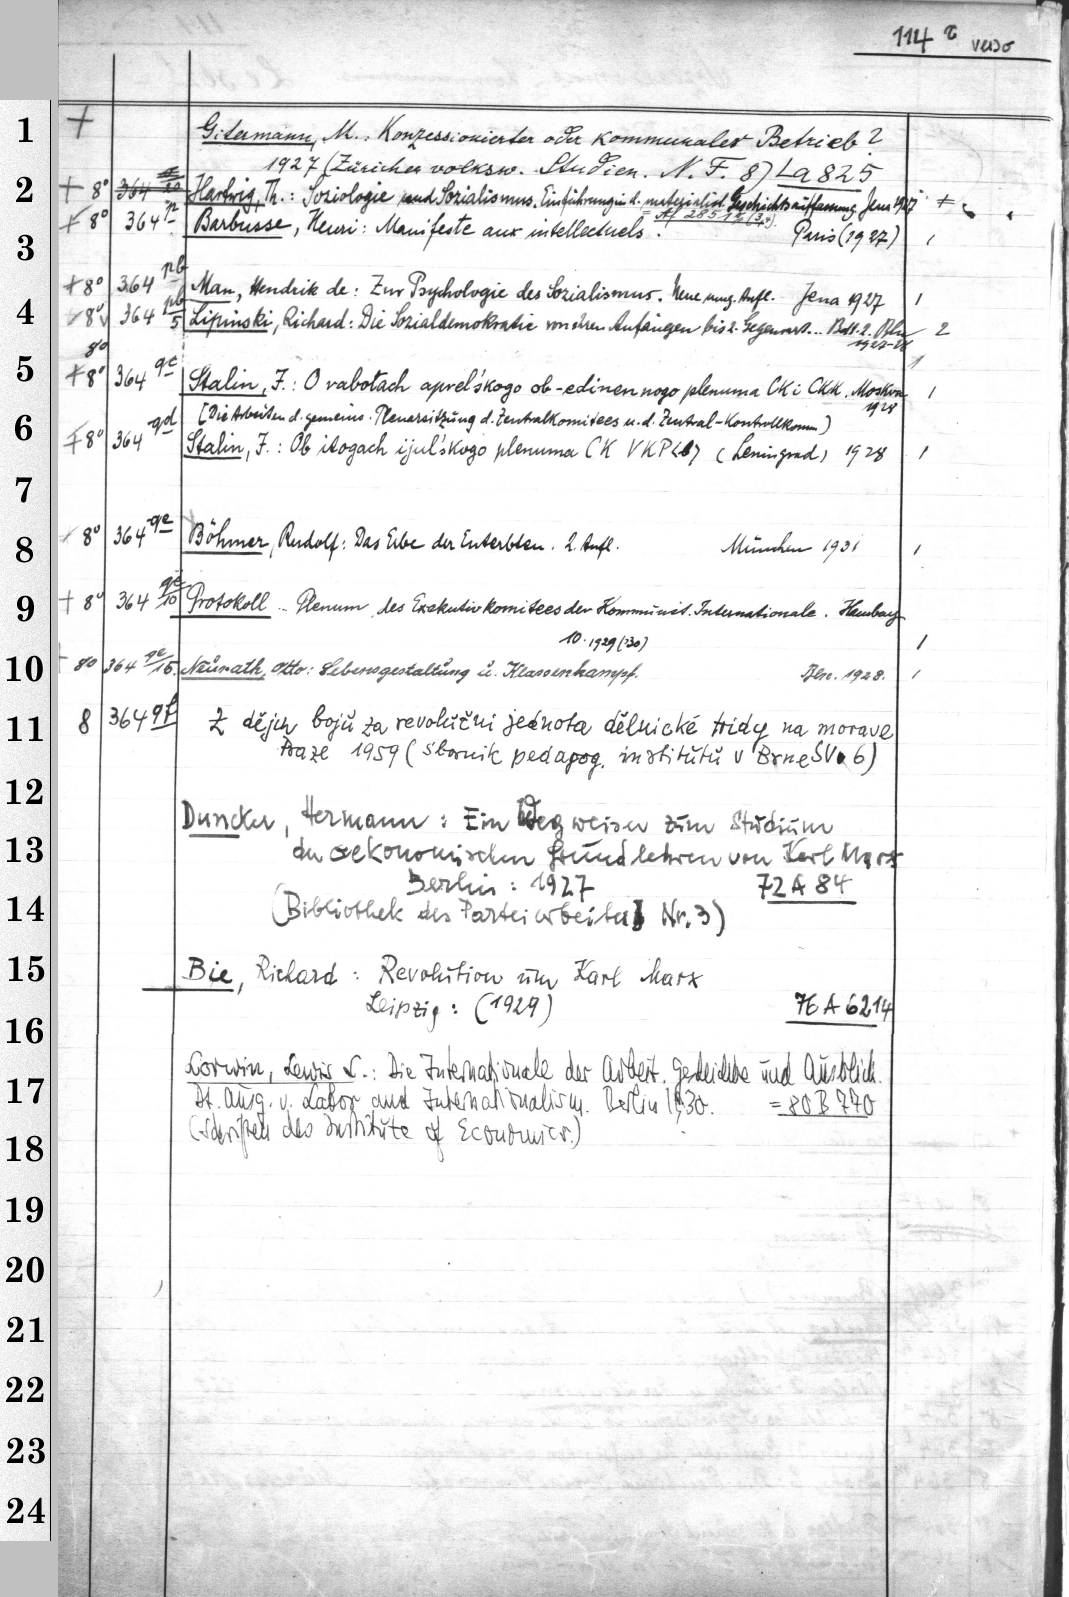 114 r verso
1 + Gitermann, M.: Konzessionierter oder kommunaler Betrieb?
1927 (Züricher volksw. Studien. N. F. 8) La 825
2 + 8° 364 Hartwig, Th.: Soziologie und Sozialismus. Einführung in d. materialist. Geschichtsauffassung. Jena 1927 +
+ 8° 364 p Barbusse, Henri: Manifeste aux intellectuels. Paris (1927) 1
3
+ 8° 364 pb Man, Hendrik de: Zur Psychologie des Sozialismus. Neue umg. Aufl. Jena 1927 1
4 8° 364 pb/5 Lipinski, Richard: Die Sozialdemokratie von ihren Anfängen bis z. Gegenwart... Bd 1. 2. Bln 2
1927-28
8°
5 + 8° 364 qc Stalin, J.: O rabotach aprel'skogo ob-edinennogo plenuma CK i CKK. Moskva 1
1928
(Die Arbeiten d. gemeins. Plenarsitzung d. Zentralkomitees u. d. Zentral-Kontrollkomm)
6 + 8° 364 qd Stalin, J.: Ob itogach ijul'skogo plenuma CK VKP(b) (Leningrad) 1928 1
7
8 8° 364 qe Böhmer, Rudolf: Das Erbe der Enterbten. 2. Aufl. München 1931 1
9 + 8° 364 qe/10 Protokoll .. Plenum des Exekutivkomitees der Kommunist. Internationale. Hamburg
10. 1929 (30) 1
10 8° 364 qe/15 Neurath, Otto: Lebensgestaltung u. Klassenkampf. Bln. 1928. 1
11 8 364 qf Z dějin bojů za revoluční jednota dělnické třídy na morave
Praze 1959 (Sborník pedagog. institutu v Brne SV. 6)
12
Duncker, Hermann: Ein Wegweiser zum Studium
13 der oekonomischen Grundlehren von Karl Marx
Berlin: 1927 72 A 84
14 (Bibliothek des Parteiarbeiters Nr. 3)
15 Bie, Richard: Revolution um Karl Marx
Leipzig: (1929) 76 A 6214
16
Lorwin, Lewis L.: Die Internationale der Arbeit. Geschichte und Ausblick.
17 Dt. Ausg. v. Labor and Internationalism. Berlin 1930. = 80 B 770
(Schriften des Institute of Economics.)
18
19
20
21
22
23
24